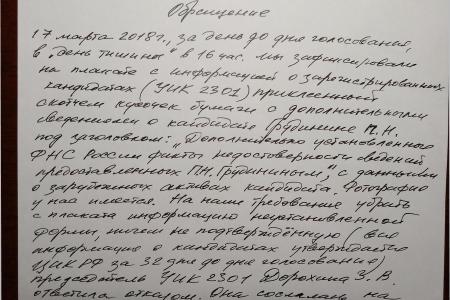 Обращение
17 марта 2018г., за день до дня голосования,
в „день тишины" в 16 час. мы зафиксировали
на плакате с информацией о зарегистрированных
кандидатах (УИК 2301) приклеенный
скотчем кусочек бумаги с дополнительными
сведениями о кандидате Грудинине П.Н.
под заголовком: „Дополнительно установленного
ФНС России факты недостоверности сведений
предоставленных П.Н. Грудининым", с данными
о зарубежных активах кандидата. Фотография
у нас имеется. На наше требование убрать
с плаката информацию неустановленной
формы, ничем не подтверждённую (вся
информация о кандидатах утверждается
ЦИК РФ за 32 дня до дня голосования)
председатель УИК 2301 Дорохина З.В.
ответила отказом. Она сослалась на